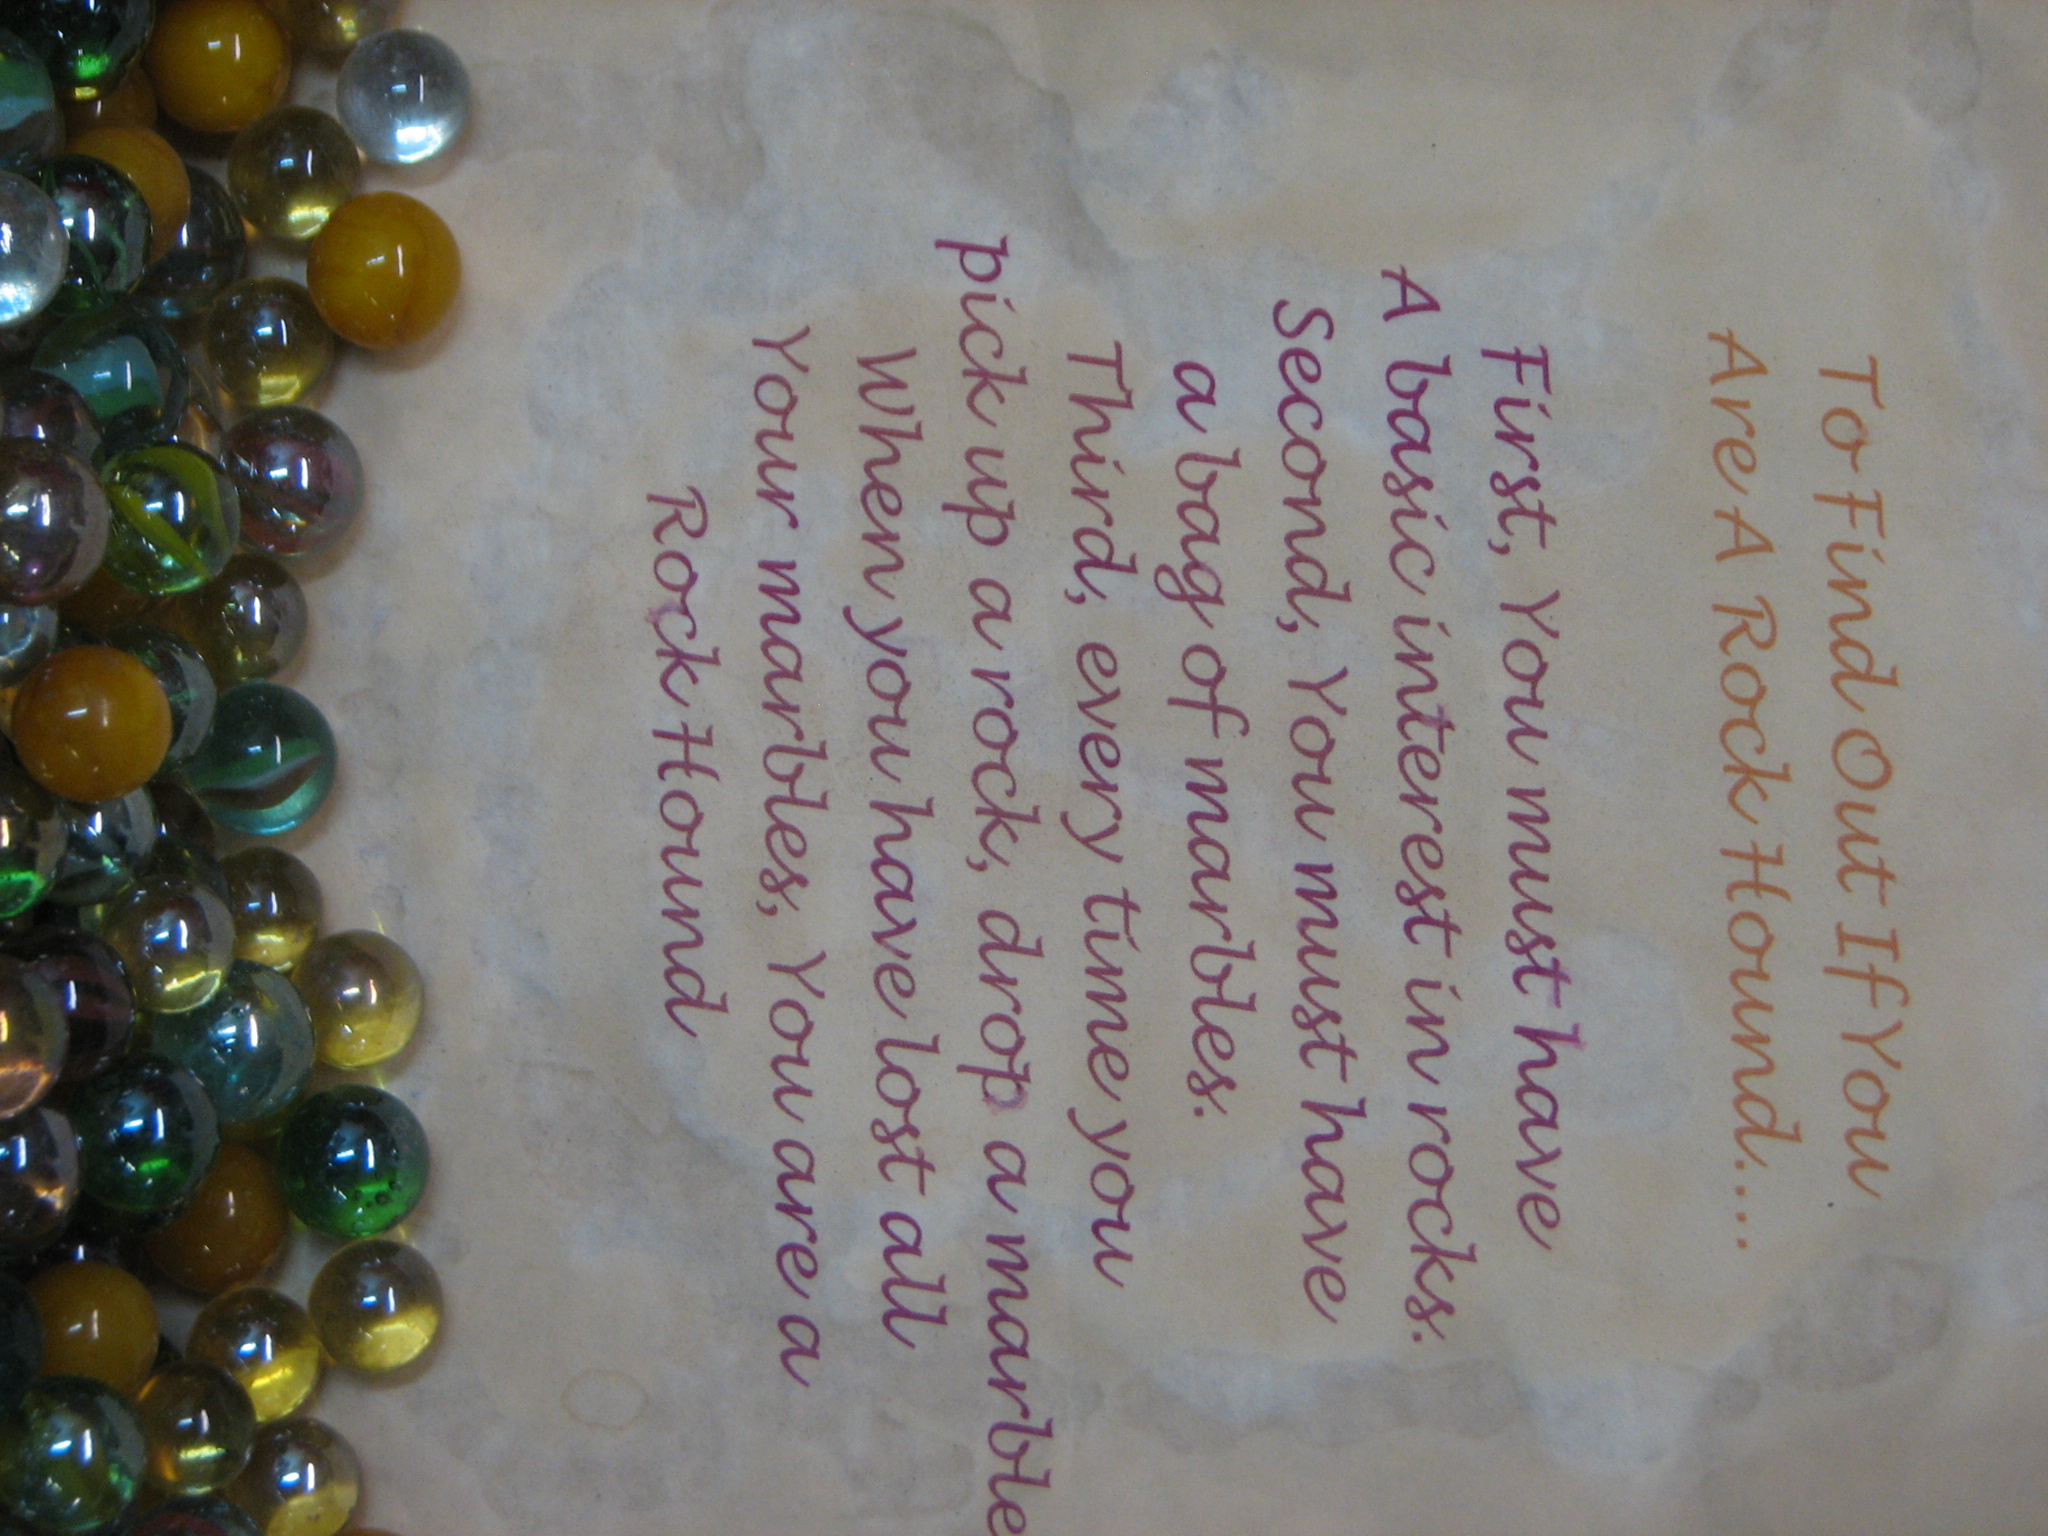 To Find Out If You
Are A Rock Hound....
First, You must have
A basic interest in rocks.
Second, You must have
a bag of marbles.
Third, every time you
pick up a rock, drop a marble
When you have lost all
Your marbles, You are a
Rock Hound